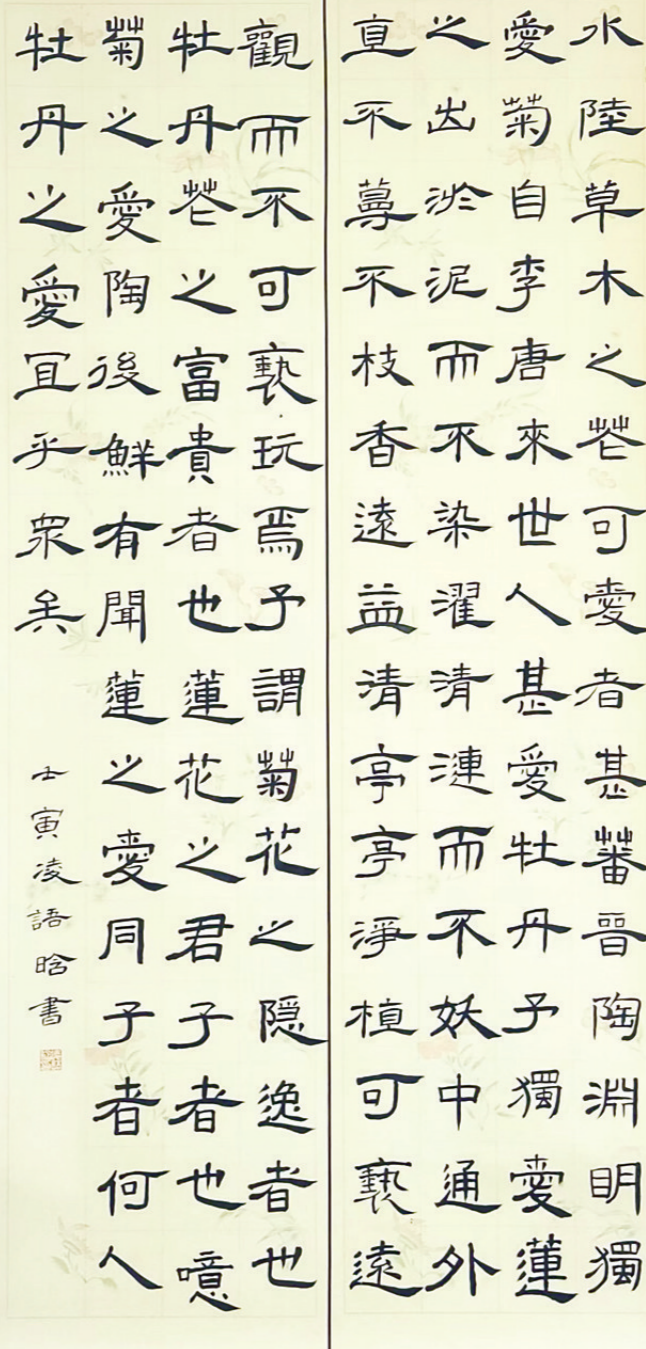 水陸草木之花可愛者甚蕃晉陶淵明獨
愛菊自李唐來世人甚愛牡丹予獨愛蓮
之出淤泥而不染濯清漣而不妖中通外
直不蔓不枝香遠益清亭亭淨植可褻遠
觀而不可褻玩焉予謂菊花之隐逸者也
牡丹花之富貴者也蓮花之君子者也噫
菊之愛陶後鮮有聞蓮之愛同子者何人
牡丹之愛宜乎眾矣
壬寅凌語晗書